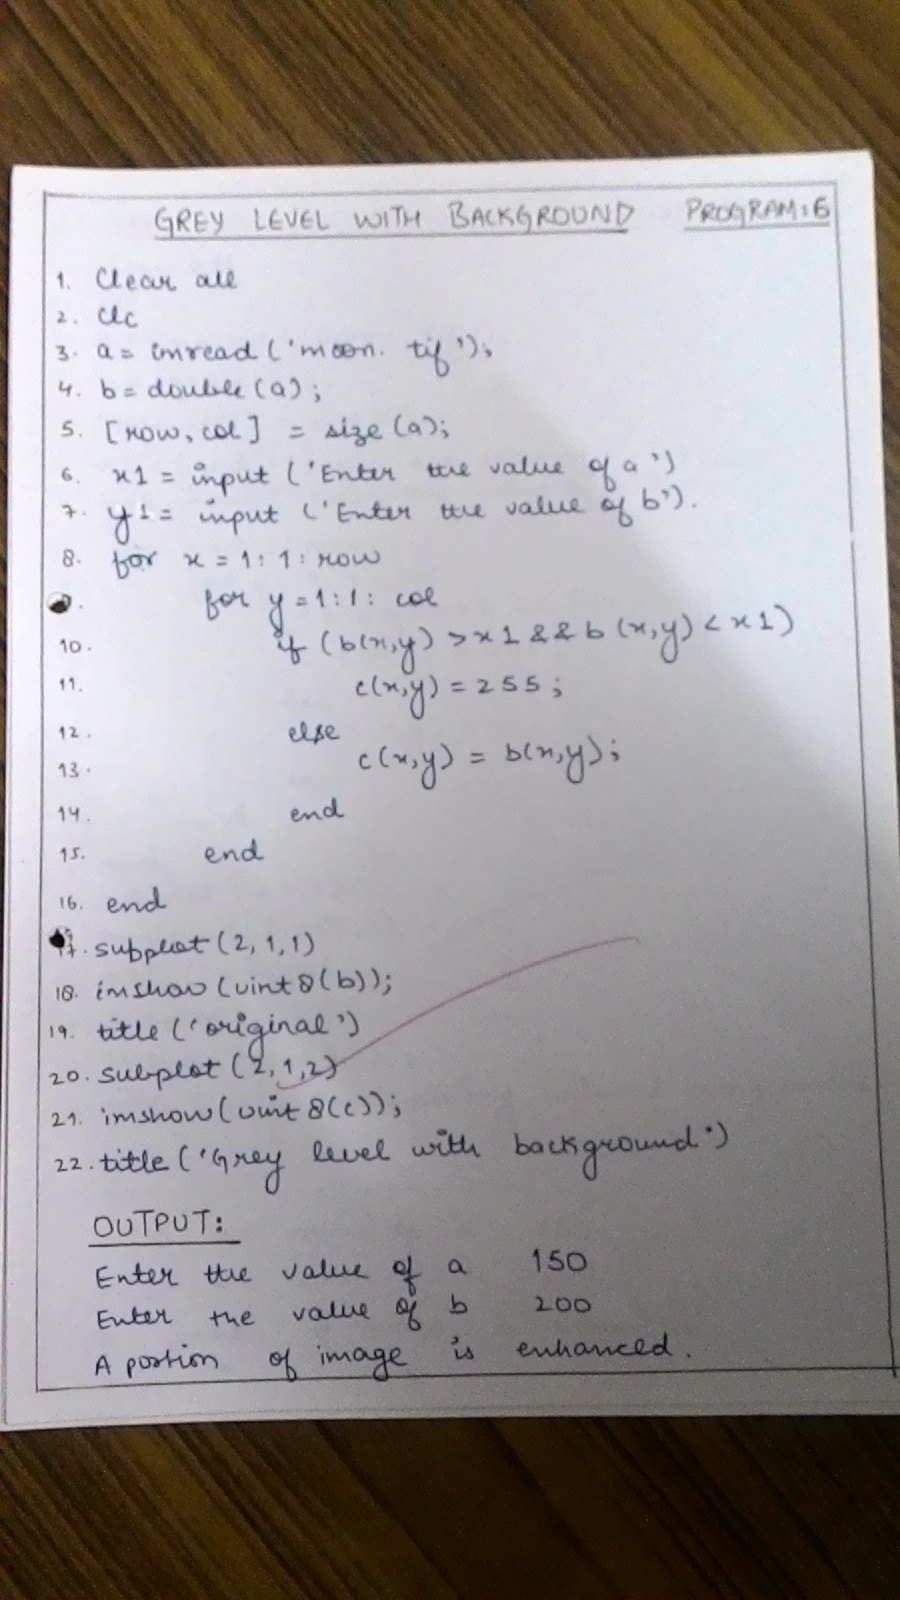 GREY LEVEL WITH BACKGROUND PROGRAM:6
1. Clear all
2. Clc
3. a = imread ('moon. tif');
4. b = double (a);
5. [row, col] = size (a);
6. x1 = input ('Enter the value of a')
7. y1 = input ('Enter the value of b').
8. for x = 1:1: row
for y = 1:1: col
10. if (b(x,y) > x1 && b (x,y) < x1)
11. c(x,y) = 255;
12. else
13. c(x,y) = b(x,y);
14. end
15. end
16. end
17. subplot (2,1,1)
18. imshow (uint8(b));
19. title ('original')
20. subplot (2,1,2)
21. imshow (uint8(c));
22. title ('Grey level with background')
OUTPUT:
Enter the value of a 150
Enter the value of b 200
A portion of image is enhanced.